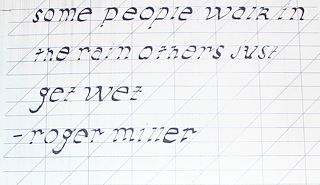 some people walk in
the rain others just
get wet
- roger miller